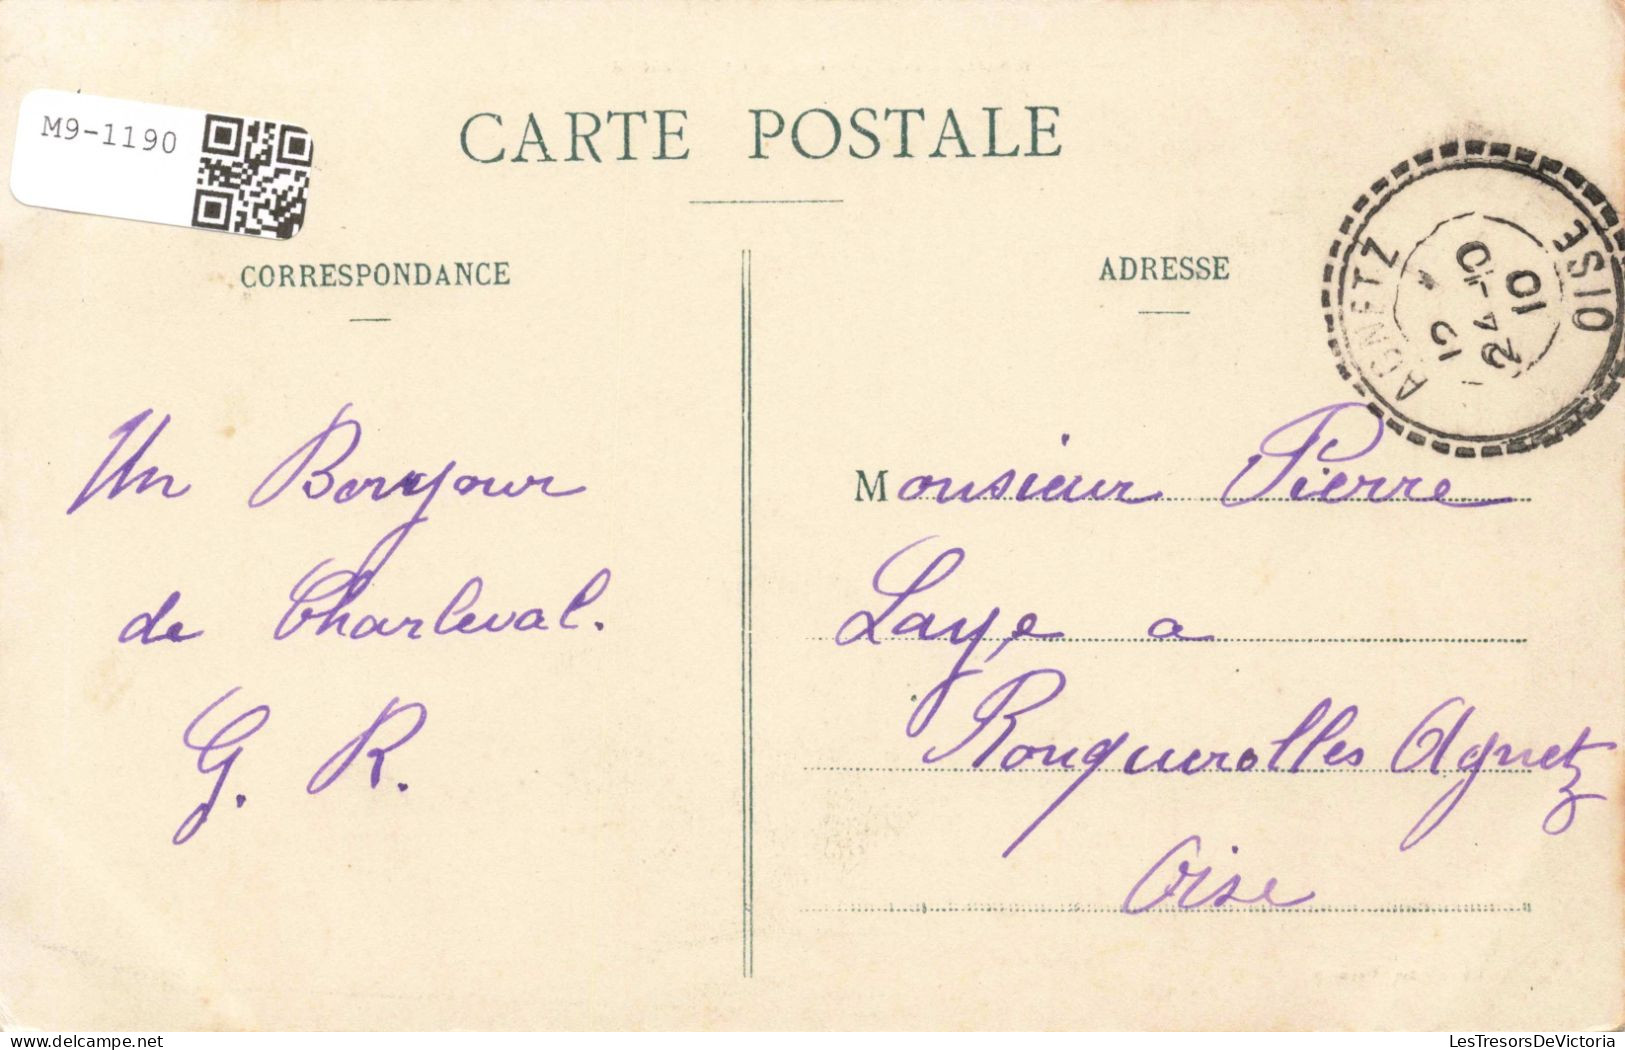 M9-1190
CARTE POSTALE
CORRESPONDANCE
ADRESSE
AGNETZ
OISE
24-10
10
Un Bonjour
de Charleval.
G. R.
Monsieur Pierre
Laye a
Ronquerolles Agnetz
Oise
LesTresorsDeVictoria